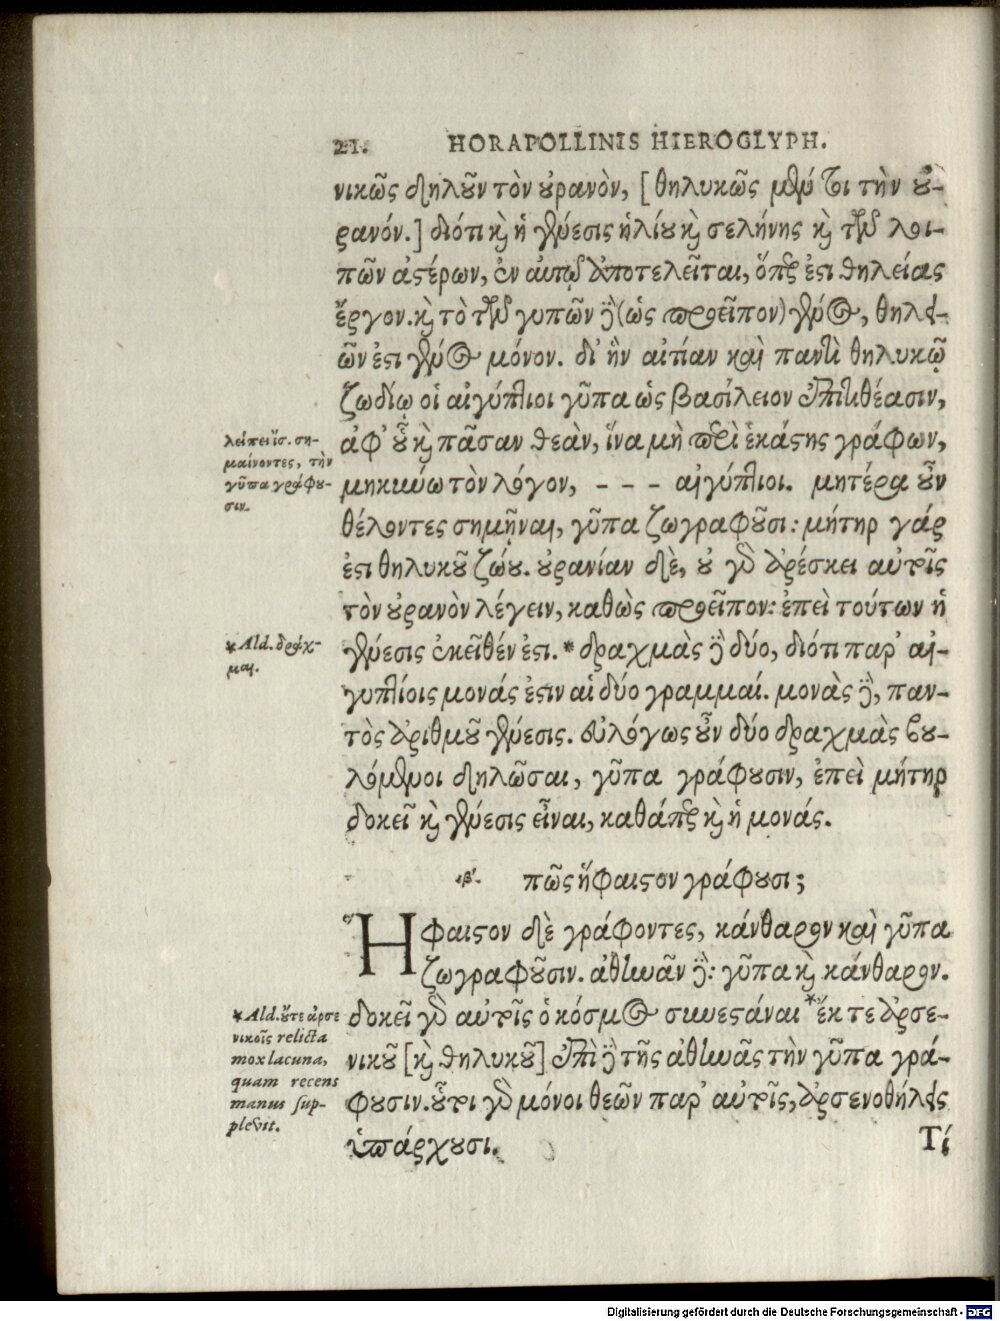 21. HORAPOLLINIS HIEROGLYPH.
νικῶς δηλοῦν τὸν οὐρανὸν, [θηλυκῶς μέν τοι τὴν οὐ-
ρανόν.] διότι καὶ ἡ γένεσις ἡλίου καὶ σελήνης καὶ τῶν λοι-
πῶν ἀστέρων, ἐν αὐτῷ ἀποτελεῖται, ὅπερ ἐστὶ θηλείας
ἔργον. καὶ τὸ τῶν γυπῶν δὲ (ὡς προεῖπον) γένος, θηλει-
ῶν ἐστι γένος μόνον. δι' ἣν αἰτίαν καὶ παντὶ θηλυκῷ
ζωδίῳ οἱ αἰγύπτιοι γῦπα ὡς βασίλειον ἐπιτιθέασιν,
ἀφ' οὗ καὶ πᾶσαν θεὰν, ἵνα μὴ περὶ ἑκάστης γράφων,
λείπει ἴσ. ση-
μαίνοντες, τὴν
γῦπα γράφου-
σιν.
μηκύνω τὸν λόγον, - - - αἰγύπτιοι. μητέρα οὖν
θέλοντες σημῆναι, γῦπα ζωγραφοῦσι: μήτηρ γάρ
ἐστι θηλυκοῦ ζώου. οὐρανίαν δὲ, οὐ γὰρ ἀρέσκει αὐτοῖς
τὸν οὐρανὸν λέγειν, καθὼς προεῖπον: ἐπεὶ τούτων ἡ
* Ald. δραχ-
μαί.
γένεσις ἐκεῖθέν ἐστι. * δραχμὰς δὲ δύο, διότι παρ' αἰ-
γυπτίοις μονάς ἐστιν αἱ δύο γραμμαί. μονὰς δὲ, παν-
τὸς ἀριθμοῦ γένεσις. εὐλόγως οὖν δύο δραχμὰς βου-
λόμενοι δηλῶσαι, γῦπα γράφουσιν, ἐπεὶ μήτηρ
δοκεῖ καὶ γένεσις εἶναι, καθάπερ καὶ ἡ μονάς.
ιβʹ. πῶς ἥφαιστον γράφουσι;
Ἥφαιστον δὲ γράφοντες, κάνθαρον καὶ γῦπα
ζωγραφοῦσιν. ἀθηνᾶν δὲ: γῦπα καὶ κάνθαρον.
* Ald. οὔτε ἀρσε
νικοῖς relicta
mox lacuna,
quam recens
manus sup-
plevit.
δοκεῖ γὰρ αὐτοῖς ὁ κόσμος συνεστάναι * ἔκ τε ἀρσε-
νικοῦ [καὶ θηλυκοῦ] ἐπὶ δὲ τῆς ἀθηνᾶς τὴν γῦπα γρά-
φουσιν. οὗτοι γὰρ μόνοι θεῶν παρ' αὐτοῖς, ἀρσενοθήλεις
ὑπάρχουσι.
Τί
Digitalisierung gefördert durch die Deutsche Forschungsgemeinschaft - DFG